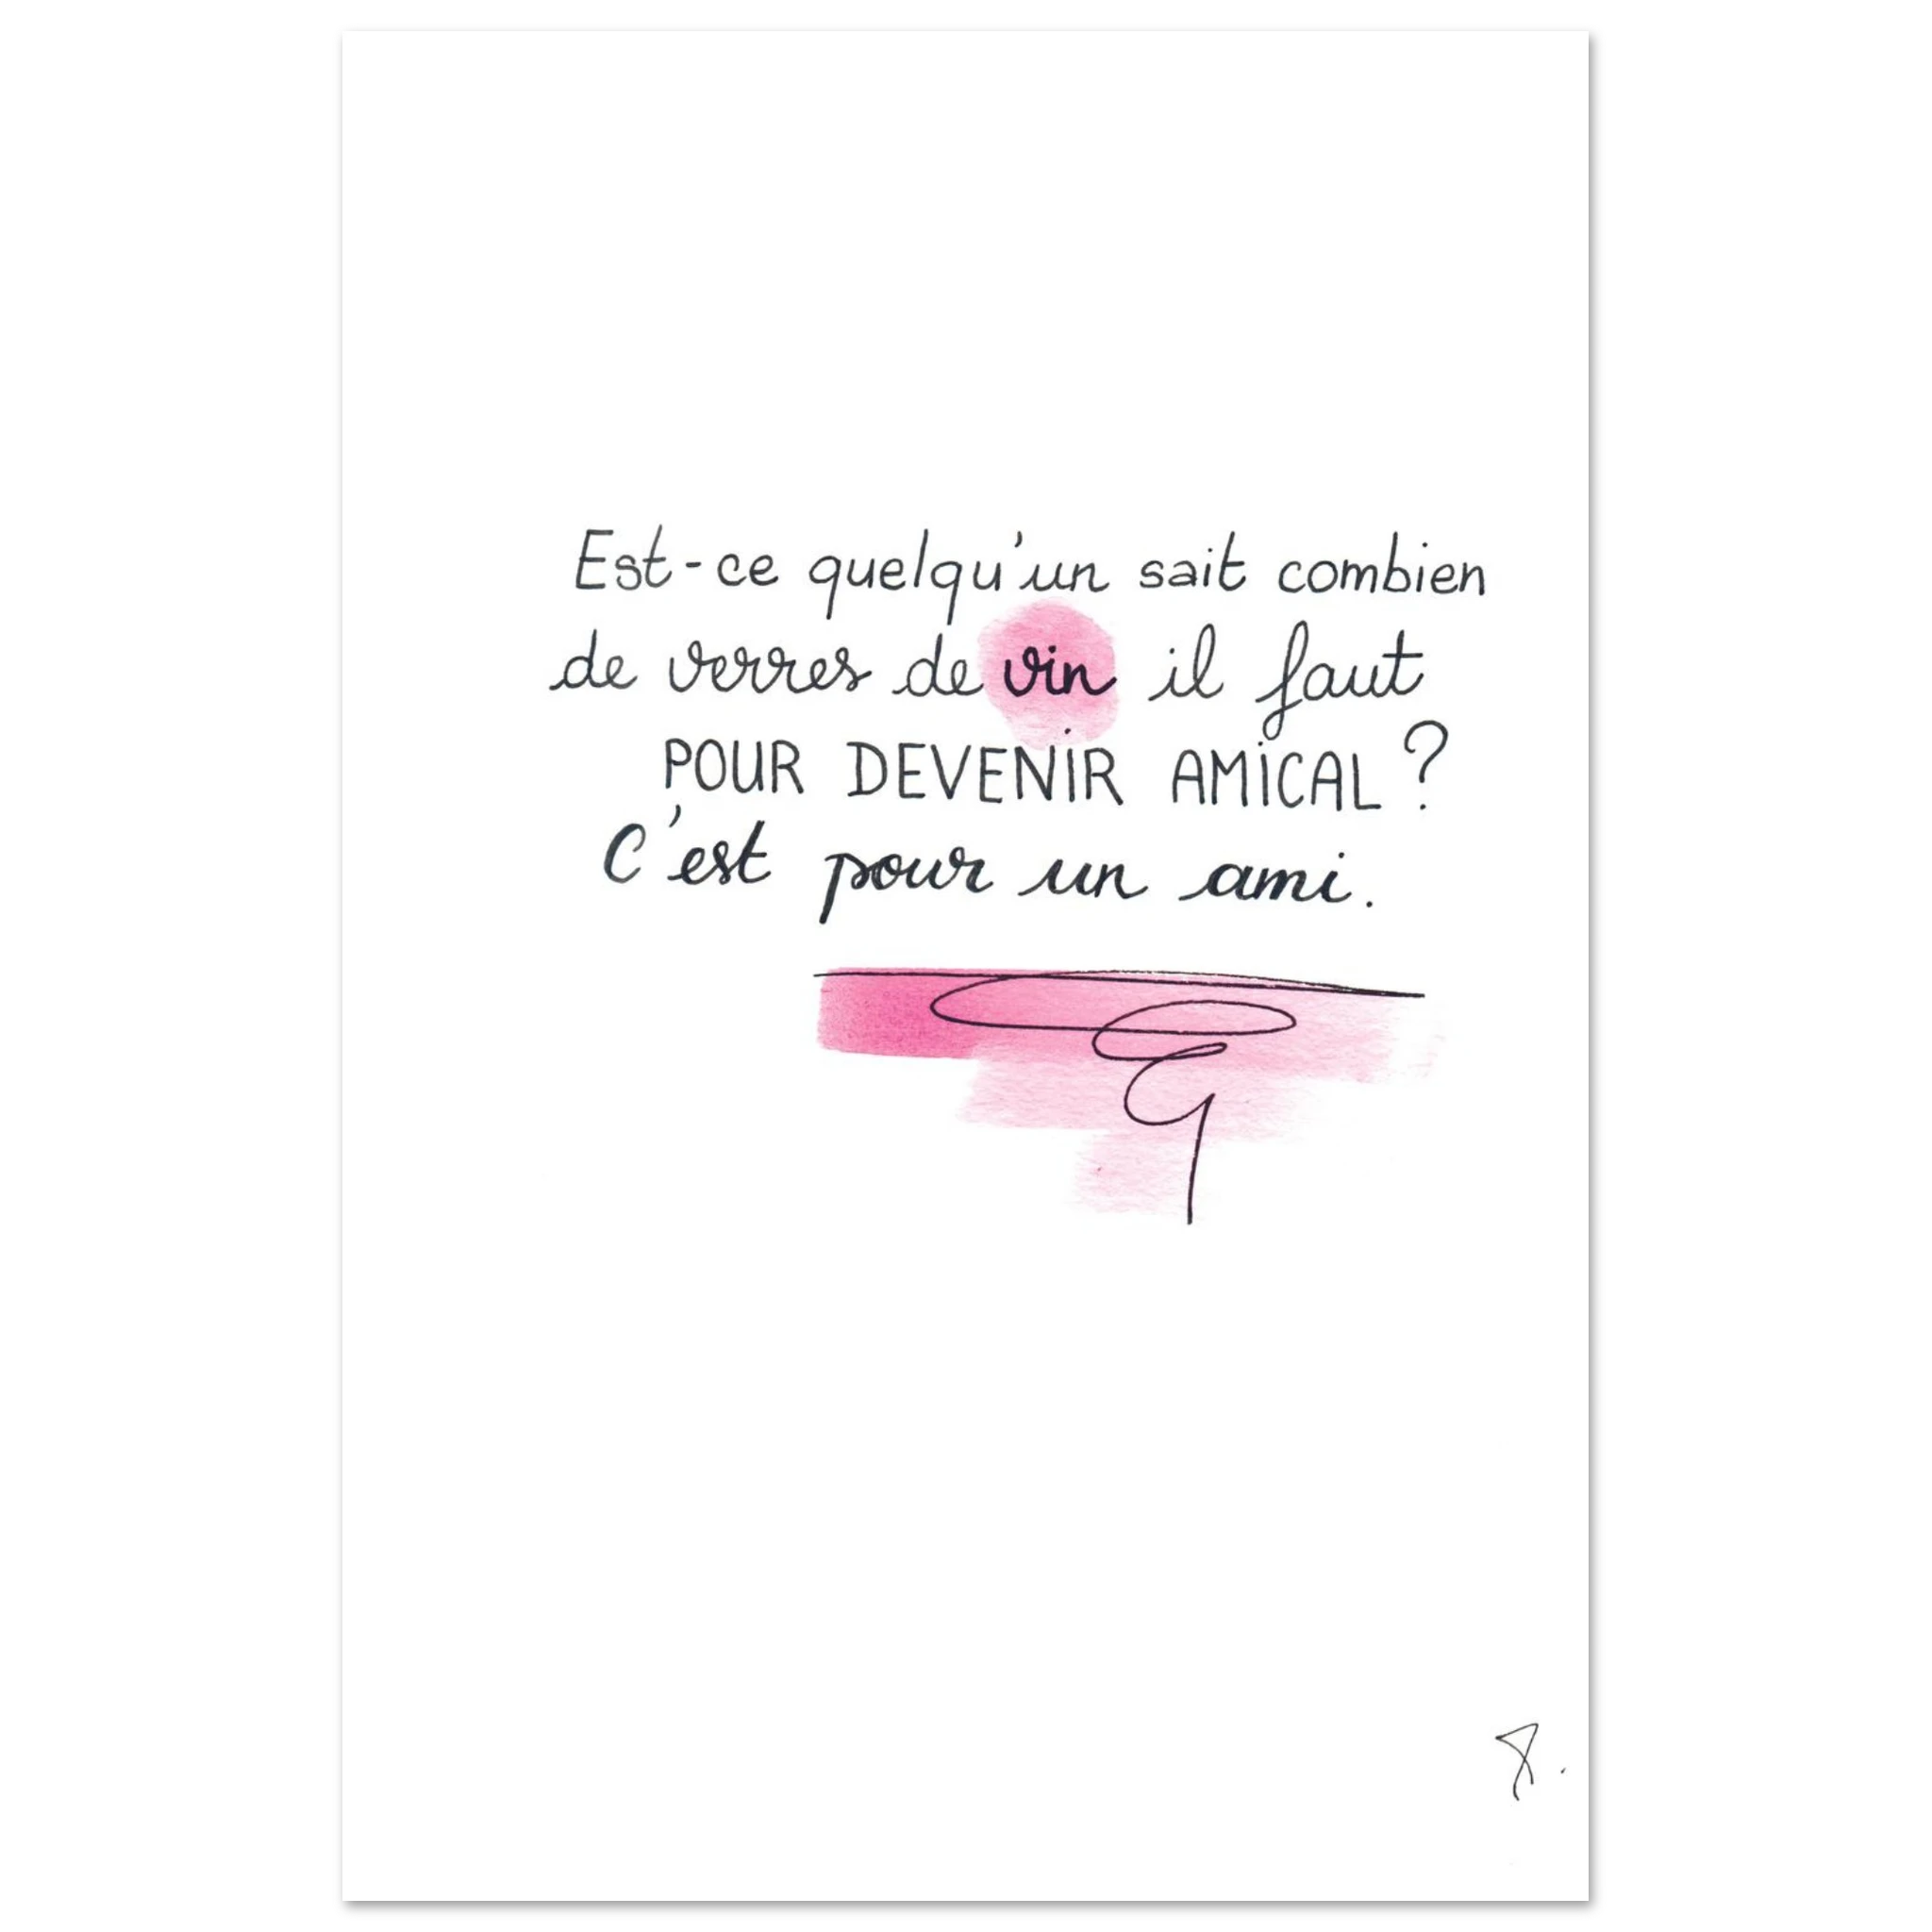 Est-ce quelqu'un sait combien
de verres de vin il faut
POUR DEVENIR AMICAL ?
C'est pour un ami.